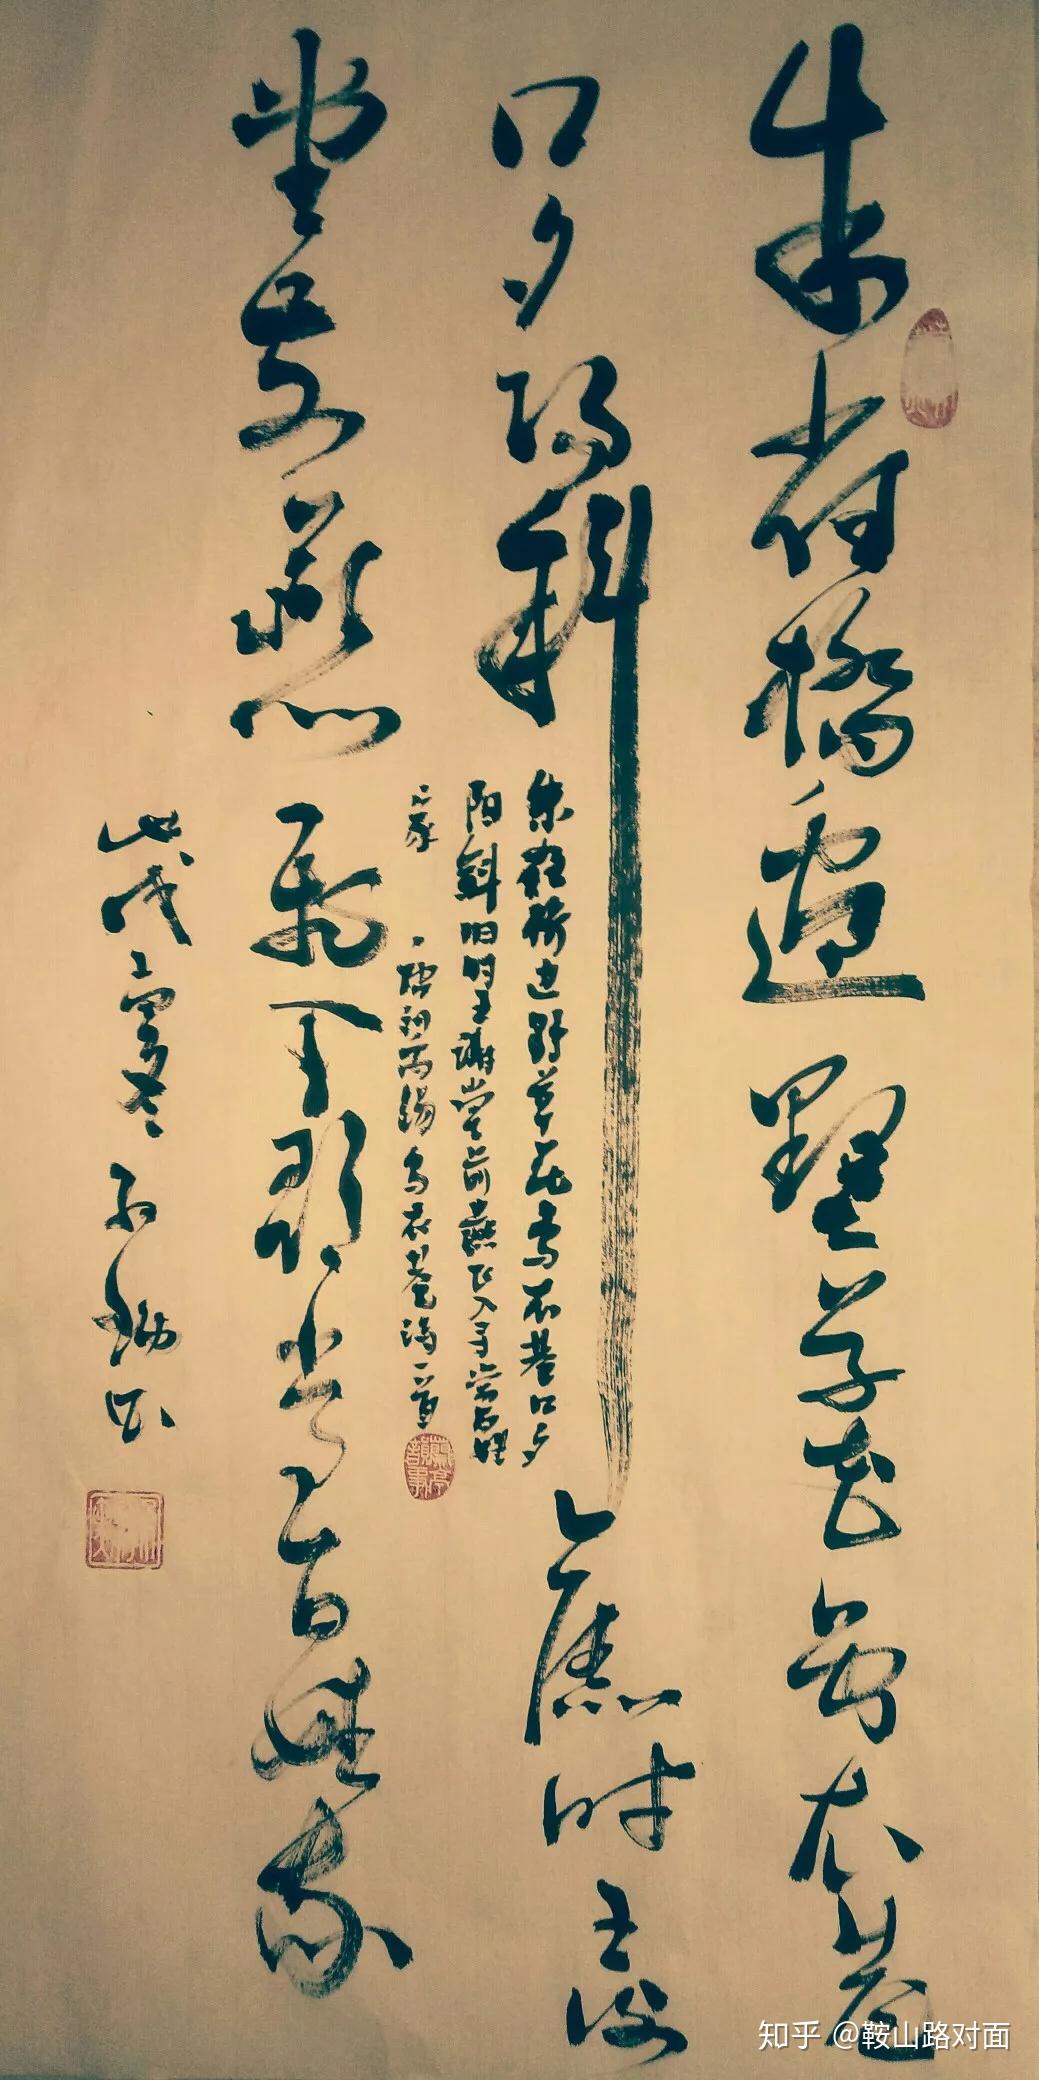 朱雀橋邊野草花烏衣巷
口夕陽斜舊時王謝
堂前燕飛入尋常百姓家
朱雀桥边野草花乌衣巷口夕
阳斜旧时王谢堂前燕飞入寻常百姓
家
刘禹锡乌衣巷诗一首
戊戌之寒冬
知乎 @鞍山路对面